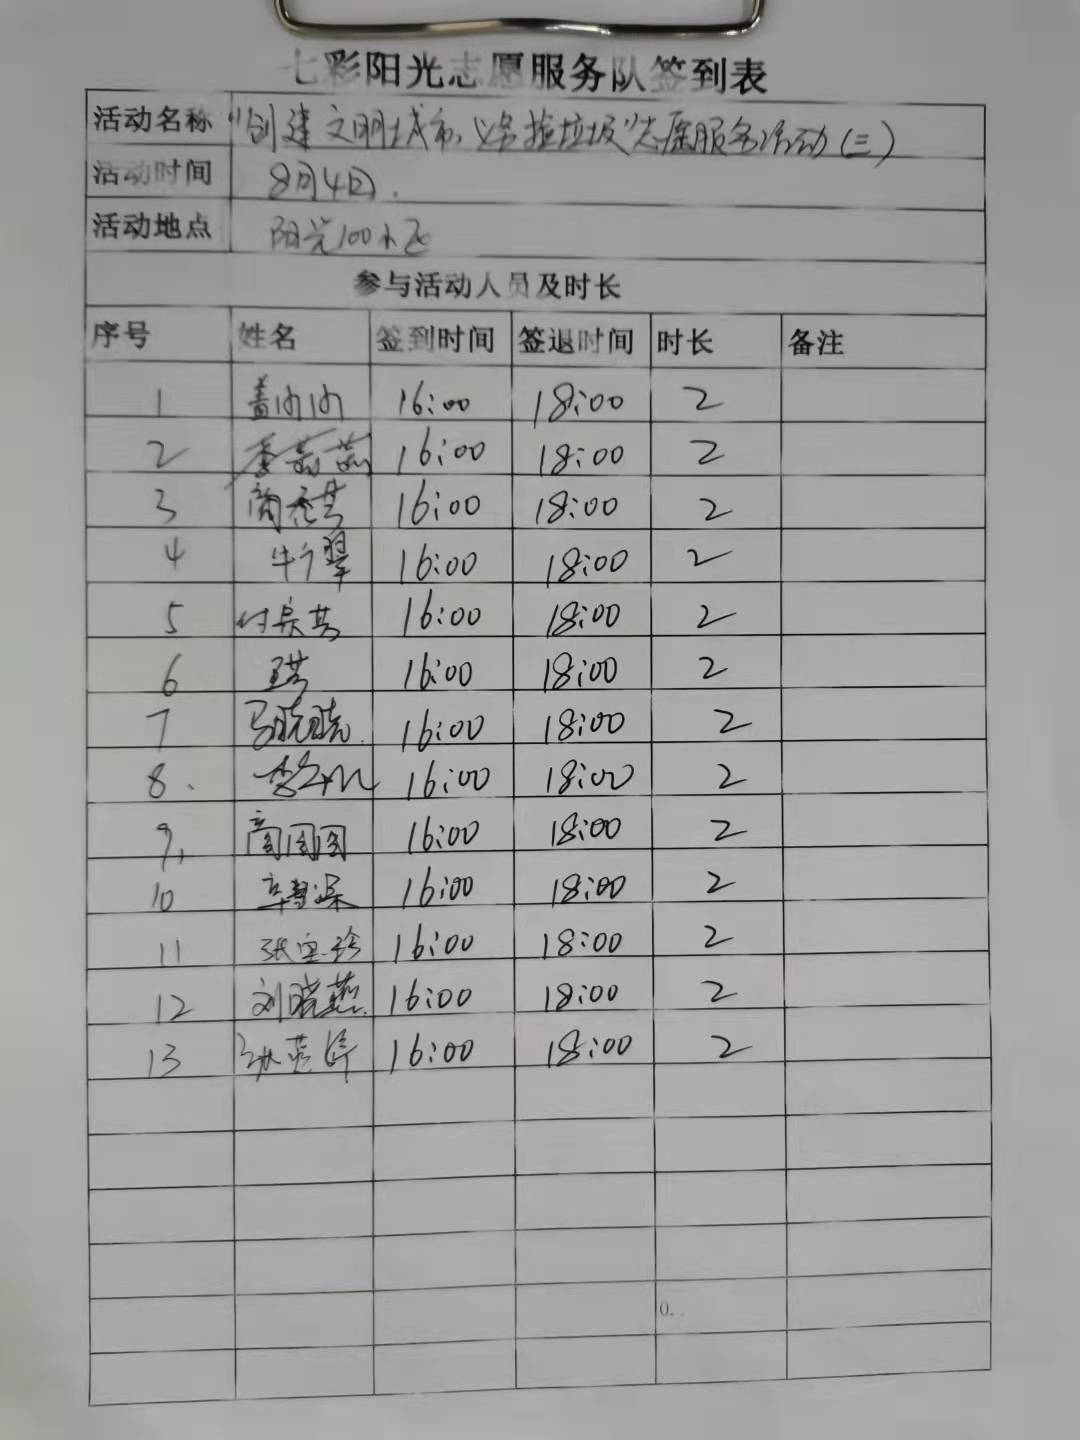 七彩阳光志愿服务队签到表
活动名称 "创建文明城市，义务捡垃圾"志愿服务活动(三)
活动时间 8月4日.
活动地点 阳光100小区
参与活动人员及时长
序号 姓名 签到时间 签退时间 时长 备注
1 16:00 18:00 2
2 16:00 18:00 2
3 16:00 18:00 2
4 16:00 18:00 2
5 16:00 18:00 2
6 16:00 18:00 2
7 马晓晓. 16:00 18:00 2
8. 16:00 18:00 2
9, 商圆圆 16:00 18:00 2
10 16:00 18:00 2
11 张宝珍 16:00 18:00 2
12 刘晓燕. 16:00 18:00 2
13 16:00 18:00 2
0.